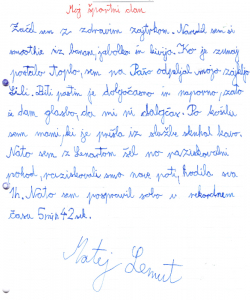 Moj športni dan
Začel sem z zdravim zajtrkom. Naredil sem si
smoothie iz banane, jabolka in kivija. Ko je zunaj
postalo toplo, sem na Pašo odpeljal mojo zajkljo
Lili. Biti pastir je dolgočasno in naporno, zato
si dam glasbo, da mi ni dolgčas. Po kosilu
sem mami, ki je prišla iz službe skuhal kavo.
Nato sem z Lenartom šel na raziskovalni
pohod, raziskovala sva nove poti, hodila sva
1h. Nato sem pospravil sobo v rekordnem
času 5 min 42 sek.
Matej Lemut